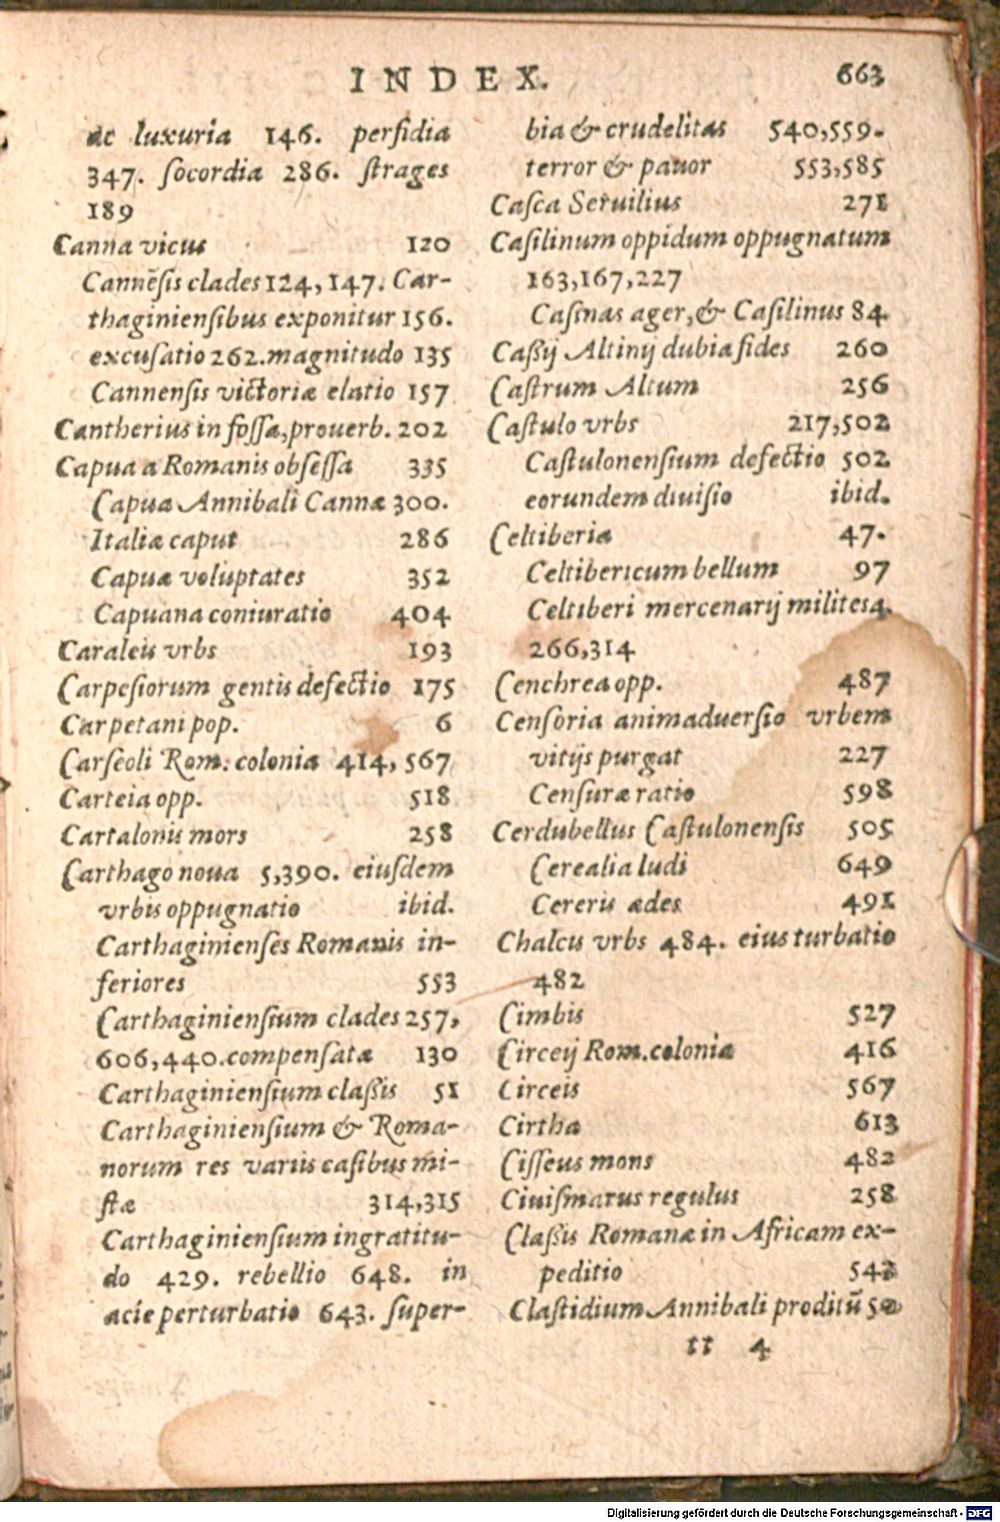 INDEX. 663
ac luxuria 146. perfidia
347. ſocordia 286. ſtrages
189
Canna vicus 120
Cannēſis clades 124, 147. Car-
thaginienſibus exponitur 156.
excuſatio 262. magnitudo 135
Cannenſis victoriæ elatio 157
Cantherius in foſſa, prouerb. 202
Capua a Romanis obſeſſa 335
Capua Annibali Cannæ 300.
Italiæ caput 286
Capuæ voluptates 352
Capuana coniuratio 404
Caraleis vrbs 193
Carpeſiorum gentis defectio 175
Carpetani pop. 6
Carſeoli Rom. colonia 414, 567
Carteia opp. 518
Cartalonis mors 258
Carthago noua 5,390. eiuſdem
vrbis oppugnatio ibid.
Carthaginienſes Romanis in-
feriores 553
Carthaginienſium clades 257,
606,440. compenſatæ 130
Carthaginienſium claßis 51
Carthaginienſium & Roma-
norum res variis caſibus mi-
ſtæ 314,315
Carthaginienſium ingratitu-
do 429. rebellio 648. in
acie perturbatio 643. ſuper-
bia & crudelitas 540,559.
terror & pauor 553,585
Caſca Seruilius 271
Caſilinum oppidum oppugnatum
163,167,227
Caſinas ager, & Caſilinus 84
Caßij Altinij dubia fides 260
Caſtrum Altum 256
Caſtulo vrbs 217,502
Caſtulonenſium defectio 502
eorundem diuiſio ibid.
Celtiberia 47.
Celtibericum bellum 97
Celtiberi mercenarij milites 4.
266,314
Cenchrea opp. 487
Cenſoria animaduerſio vrbem
vitijs purgat 227
Cenſuræ ratio 598
Cerdubellus Caſtulonenſis 505
Cerealia ludi 649
Cereris ædes 491
Chalcis vrbs 484. eius turbatio
482
Cimbis 527
Circeij Rom. colonia 416
Circeis 567
Cirtha 613
Ciſſeus mons 482
Ciuiſmarus regulus 258
Claßis Romanæ in Africam ex-
peditio 543
Claſtidium Annibali proditũ 50
tt 4
Digitalisierung gefördert durch die Deutsche Forschungsgemeinschaft - DFG